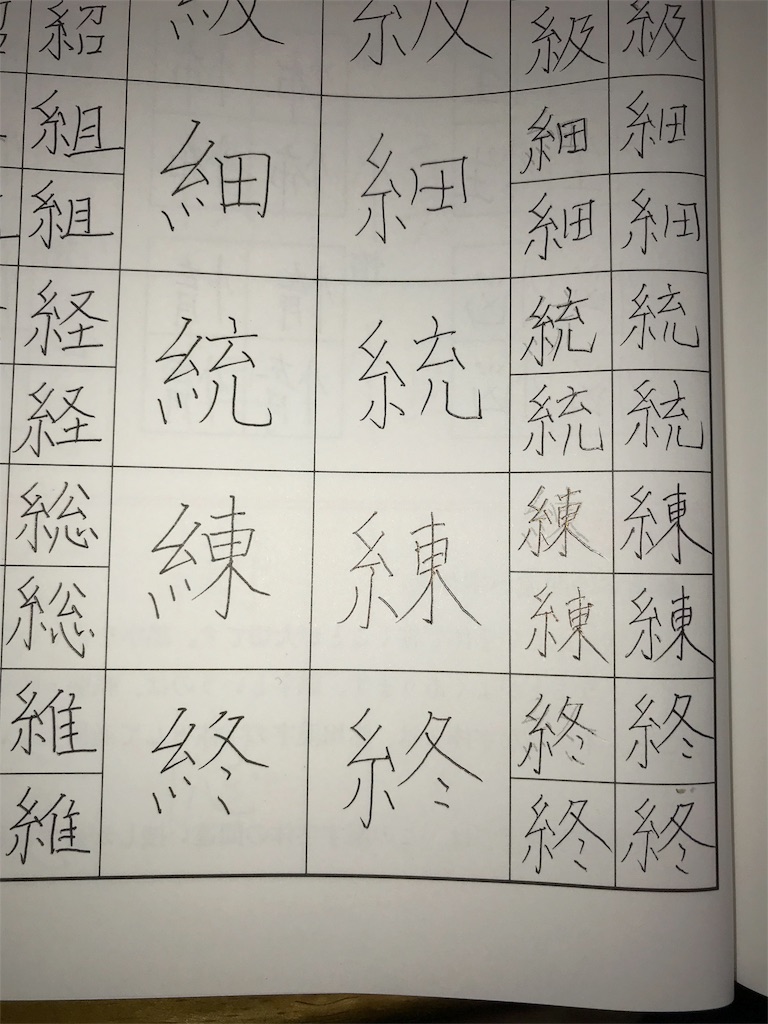 紹 級 級 級 級
組 細 細 細 細
組 細 細
経 統 統 統 統
経 統 統
総 練 練 練 練
総 練 練
維 終 終 終 終
維 終 終